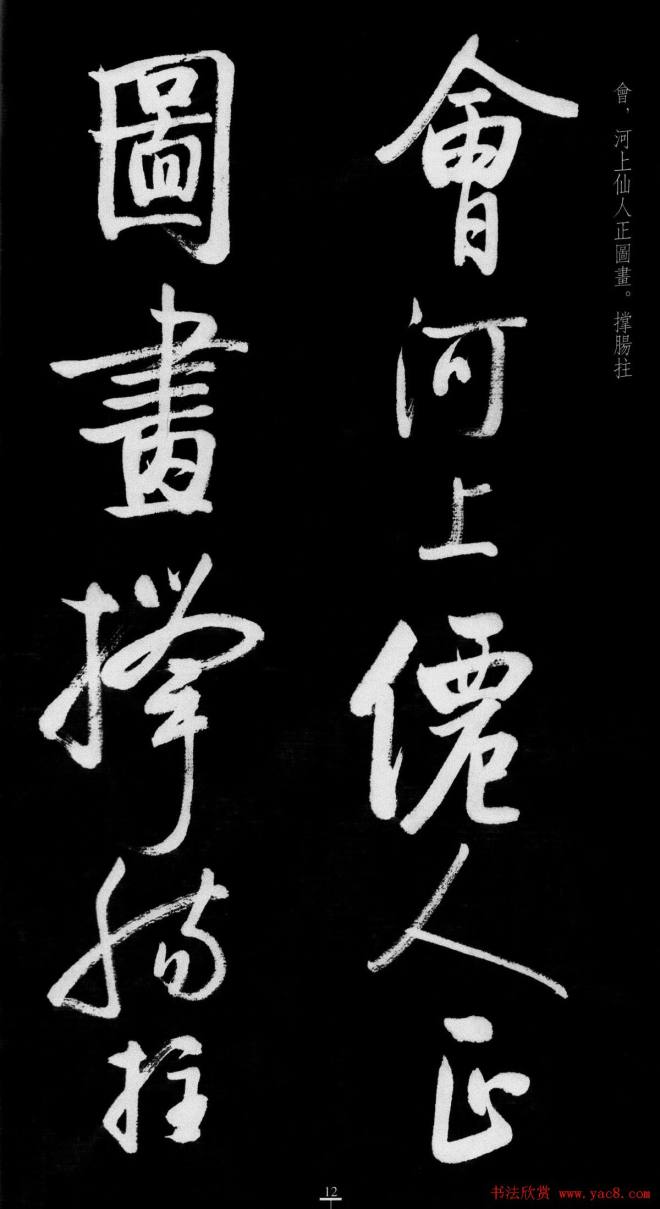 會，河上仙人正圖畫。撐腸拄
會河上僊人正
圖畫撐腸拄
12
书法欣赏 www.yac8.com